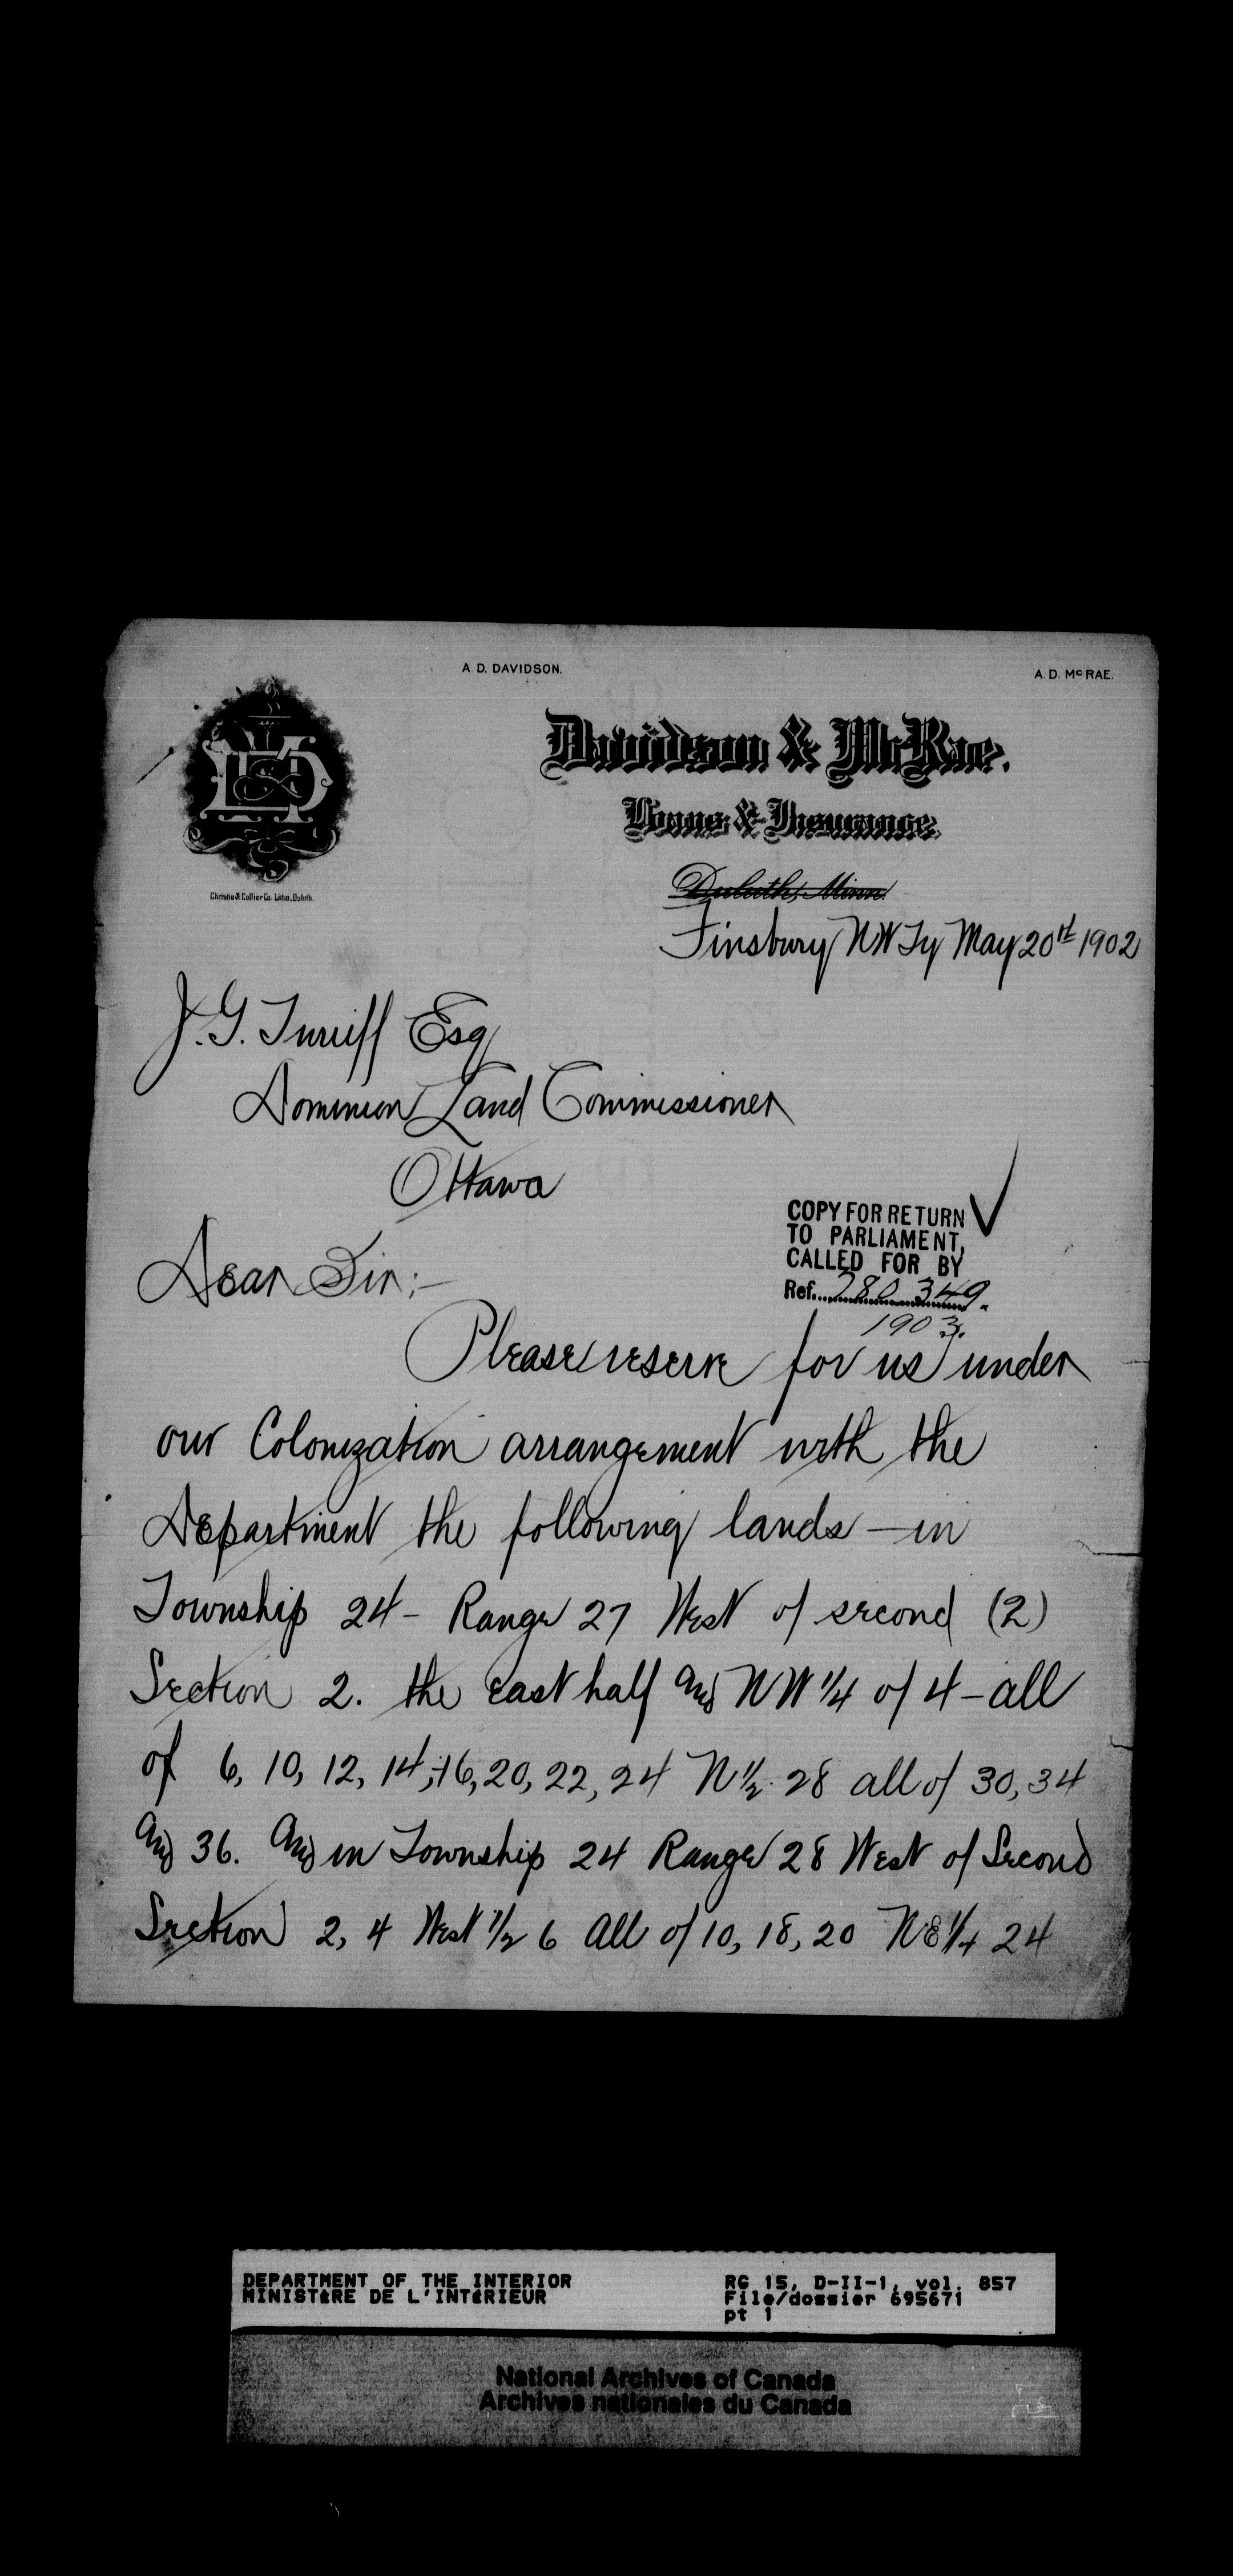 A. D. DAVIDSON.
A. D. McRAE.
Davidson & McRae.
Loans & Insurance.
Duluth, Minn.
Christie & Collier Co. Litho., Duluth.
Finsbury NW Ty May 20th 1902
J. G. Turriff Esq
Dominion Land Commissioner
Ottawa
COPY FOR RETURN
TO PARLIAMENT,
CALLED FOR BY
Ref. 780349.
1903.
Dear Sir:—
Please reserve for us under
our Colonization arrangement with the
Department the following lands — in
Township 24 - Range 27 West of second (2)
Section 2. the east half and NW 1/4 of 4 - all
of 6, 10, 12, 14, 16, 20, 22, 24 N 1/2 28 all of 30, 34
and 36. And in Township 24 Range 28 West of Second
Section 2, 4 West 1/2 6 All of 10, 18, 20 NE 1/4 24
DEPARTMENT OF THE INTERIOR
MINISTÈRE DE L'INTÉRIEUR
RG 15, D-II-1, vol. 857
File/dossier 695671
pt 1
National Archives of Canada
Archives nationales du Canada